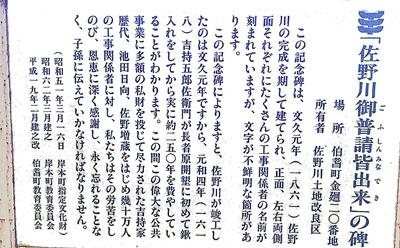 「佐野川御普請皆出来」の碑
ごふしんみなでき
場所 伯耆町金廻二〇番地
所有者 佐野川土地改良区
この記念碑は、文久元年(一八六一)佐野
川の完成を期して建てられ、正面、左右両側
面それぞれにたくさんの工事関係者の名前が
刻まれていますが、文字が不鮮明な箇所があ
ります。
この記念碑によりますと、佐野川が竣工し
たのは文久元年ですから、元和四年(一六一
八)吉持五郎左衛門が長者原開墾に初めて鍬
入れをしてから実に約二五〇年を費やしてい
ることがわかります。この間この偉大な公共
事業に多額の私財を投じて尽力された吉持家
歴代、池田日向、佐野増蔵をはじめ幾十万人
の工事関係者に対し、私たちはその労苦をし
のび、恩恵に深く感謝し、永く忘れることな
く、子孫に伝えていかなければなりません。
(昭和五一年三月一六日 岸本町指定文化財)
昭和六二年二月建之 岸本町教育委員会
平成一九年二月建之改 伯耆町教育委員会